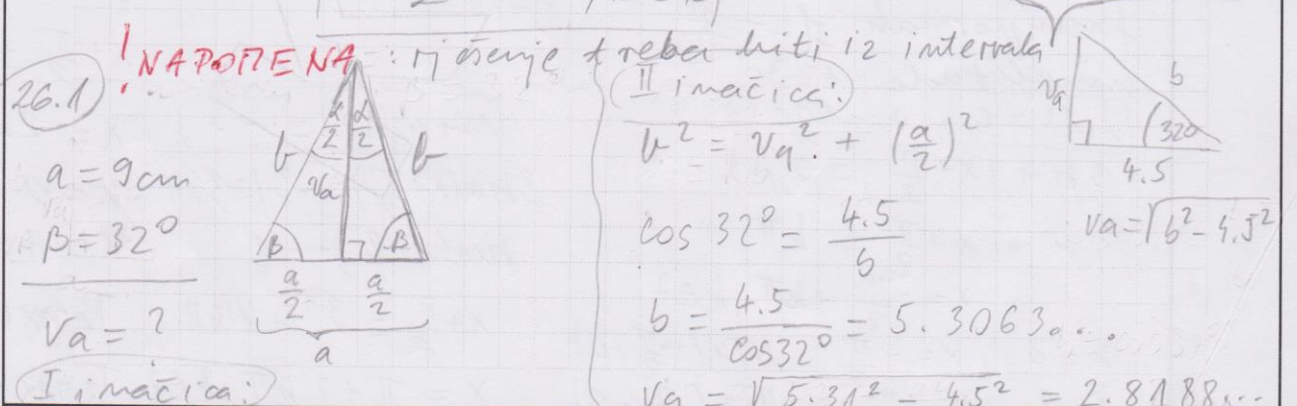 ! NAPOMENA: rješenje treba biti iz intervala
26.1)
a = 9 cm
β = 32°
va = ?
I inačica:
α/2 α/2
b va b
β β
a/2 a/2
a
II inačica:
b² = va² + (a/2)²
cos 32° = 4.5/b
b = 4.5/cos32° = 5.3063....
va = √5.31² - 4.5² = 2.8188...
va b
32°
4.5
va = √b² - 4.5²